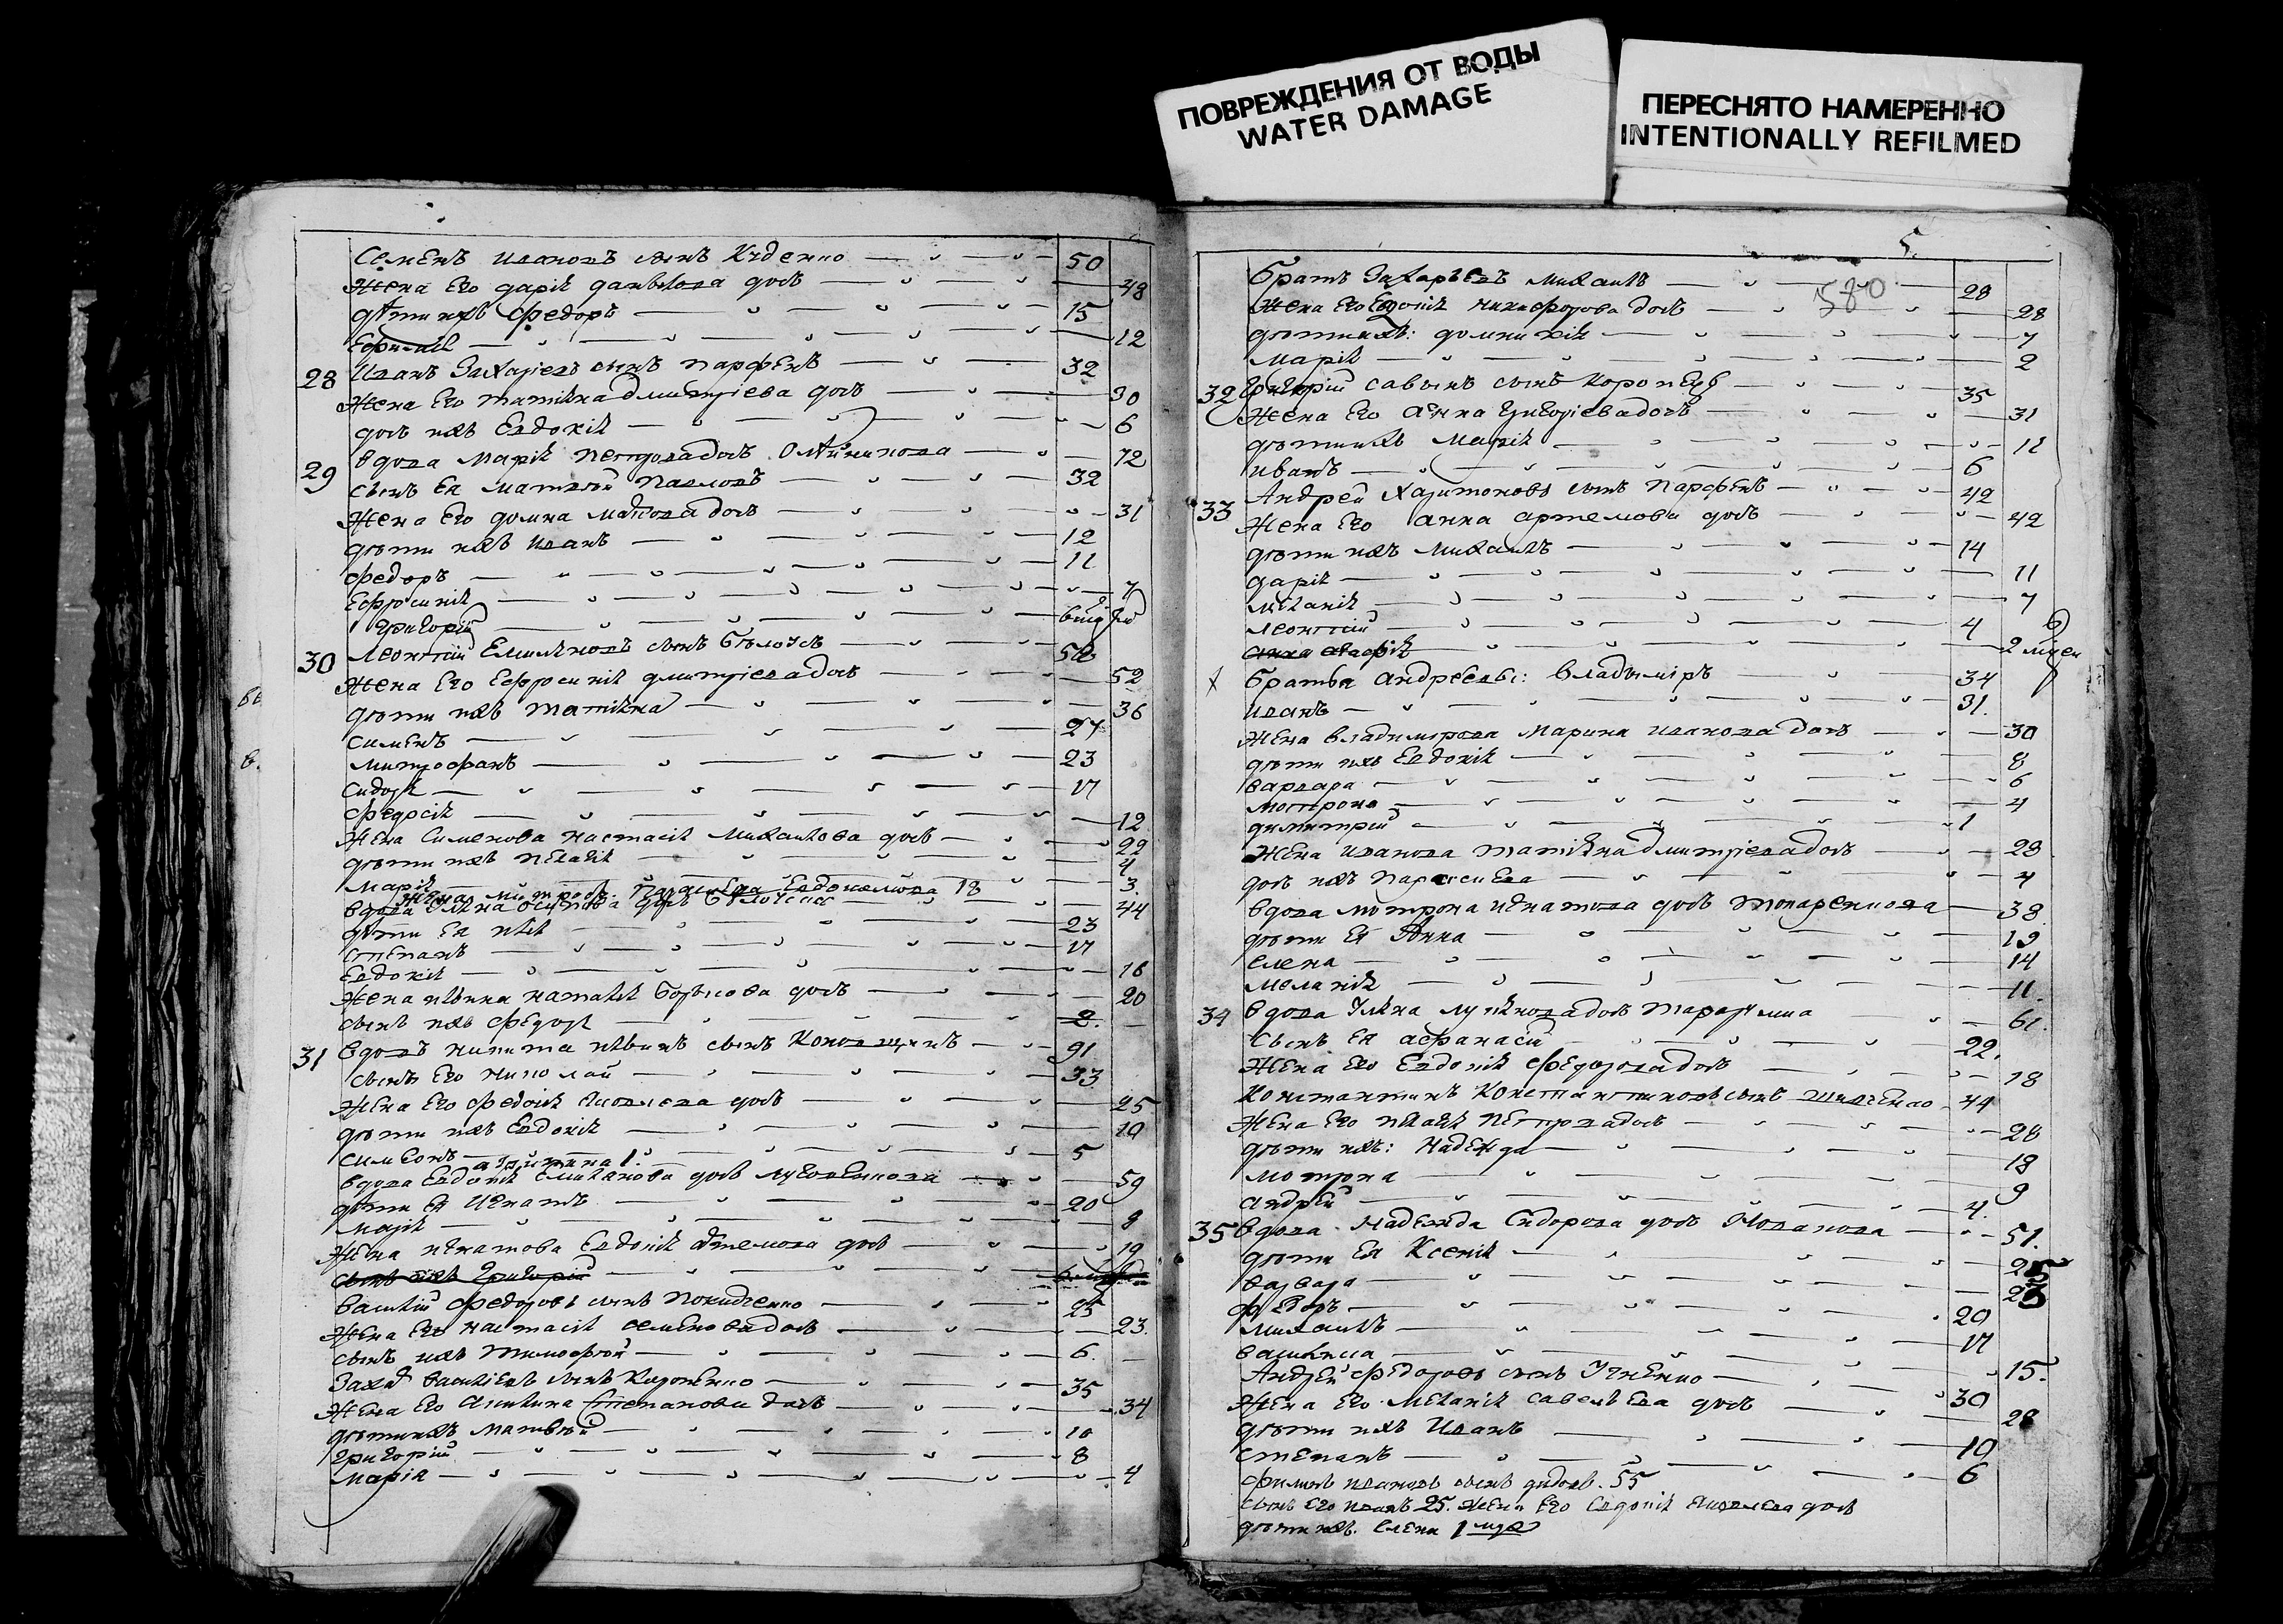 ПОВРЕЖДЕНИЯ ОТ ВОДЫ
WATER DAMAGE
ПЕРЕСНЯТО НАМЕРЕННО
INTENTIONALLY REFILMED
Семенъ Ивановъ сынъ 50
Жена Его дарія данылова дочь 48
дѣти ихъ Федоръ 15
12
28 Иванъ Захаріевъ сынъ Парфенъ 32
Жена Его татіяна дмитріева дочь 30
дочь ихъ Евдокія 6
29 вдова Марія петрова дочь Олѣйникова 72
сынъ Ея матвѣй Павловъ 32
Жена Его домна дочь 31
дѣти ихъ Иванъ 12
Федоръ 11
Ефросинія 7
Григорій
30 Леонтій Емиліяновъ сынъ Бѣлоусъ
Жена Его Ефросинія дмитріева дочь 52
дѣти ихъ татіяна 36
Сименъ 27
Митрофанъ 23
Сидоръ 17
Федосія 12
Жена Сименова настасія Михаилова дочь 22
дѣти ихъ Пелагія 4
Марія 3
Жена митроф. Параскева Евдокимова 18
вдова Уляна Осипова дочь Бѣлоуска 44
дѣти Ея илія 23
Степанъ 17
Евдокія 16
Жена иліина наталія Борисова дочь 20
сынъ ихъ Федоръ 2.
31 Вдовъ никита иліинъ сынъ 91
сынъ Его николай 33
Жена Его Федосія Яковлева дочь 25
дѣти ихъ Евдокія 10
Симеонъ 5
агрипина 1.
вдова Евдокія дочь 59
дѣти Ея Игнатъ 20
Марія 8
Жена игнатова Евдокія Артемова дочь 19
сынъ ихъ Григорій
Василій Федоровъ сынъ 25
Жена Его настасія семенова дочь 23.
сынъ ихъ тимофѣй 6.
Василіевъ сынъ 35
Жена Его Акилина Степанова дочь 34
дѣти ихъ матвѣй 10
Григорій 8
марія 4
5.
580
братъ Захарьевъ михаилъ 28
Жена Его Евдокія никифорова дочь 28
дѣти ихъ: домникія 7
Марія 2
32 Григорій савынъ сынъ Коропецъ 35
Жена Его анна Григоріева дочь 31
дѣти ихъ Марія 11
иванъ 6
33 Андрей Харитоновъ сынъ Парфенъ 42
Жена Его анна артемова дочь 42
дѣти ихъ михаилъ 14
дарія 11
меланія 7
леонтій 4
братья андреевы: владыміръ 34
иванъ 31.
Жена владимірова Марина иванова дочь 30
дѣти ихъ Евдокія 8
варвара 6
мотрона 4
димитрій 1
Жена иванова татіяна дмитріева дочь 23
дочь ихъ параскева 4
вдова мотрона игнатова дочь 38
дѣти Ея Анна 19
Елена 14
меланія 11.
34 вдова Уляна дочь 61.
Сынъ Ея афанасій 22.
Жена Его Евдокія Федорова дочь 18
Константинъ Константиновъ сынъ Шевченко 44
Жена Его пелагія петрова дочь 28
дѣти ихъ: надежда 18
мотрона 9
андрей 4.
35 вдова надежда Сидорова дочь 51.
дѣти Ея Ксенія 25
варвара 23
Федоръ 20
михаилъ 17
василиса 15.
Андрей Федоровъ сынъ 30
Жена Его меланія савельева дочь 28
дѣти ихъ Иванъ 10
степанъ 6
ивановъ сынъ 55
сынъ Его иванъ 25. Жена Его Евдокія Яковлева дочь
дѣти ихъ. Елена 1